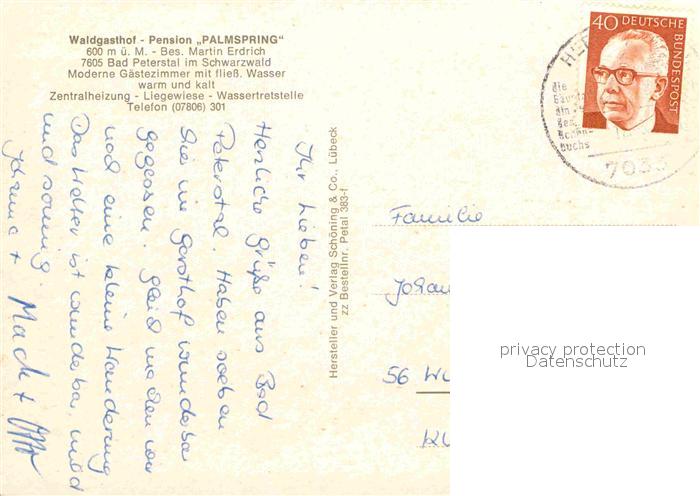 Waldgasthof - Pension „PALMSPRING"
600 m ü. M. - Bes. Martin Erdrich
7605 Bad Peterstal im Schwarzwald
Moderne Gästezimmer mit fließ. Wasser
warm und kalt
Zentralheizung - Liegewiese - Wassertretstelle
Telefon (07806) 301
Ihr Lieben!
Herzliche Grüße aus Bad
Peterstal. Haben soeben
hie im Gasthof wunderbar
gegessen. Gleich machen wir
noch eine kleine Wanderung
Das Wetter ist wunderbar, mild
und sonnig.
+
Hersteller und Verlag Schöning & Co., Lübeck
zz Bestellnr. Petal 383-f
40 DEUTSCHE
BUNDESPOST
die
des
7033
Familie
Johan
56 Wu
privacy protection
Datenschutz